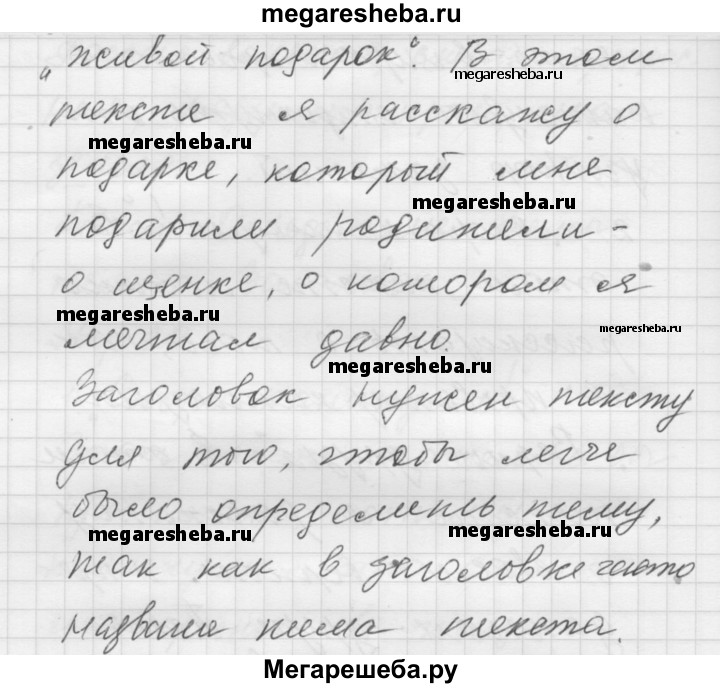 megaresheba.ru
„Живой подарок". В этом
megaresheba.ru
тексте я расскажу о
megaresheba.ru
подарке, который мне
megaresheba.ru
подарили родители -
о щенке, о котором я
megaresheba.ru
мечтал давно.
megaresheba.ru
megaresheba.ru
Заголовок нужен тексту
для того, чтобы легче
было определить тему,
megaresheba.ru
megaresheba.ru
так как в заголовке часто
названа тема текста.
Мегарешеба.ру